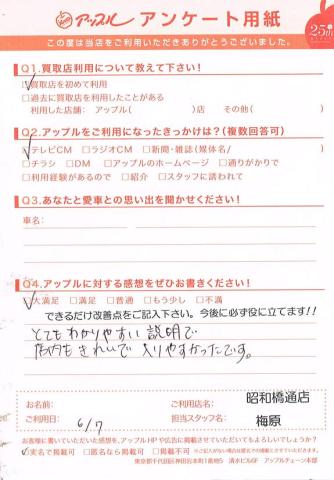 アップル アンケート用紙
25th
この度は当店をご利用いただきありがとうございました。
Q1.買取店利用について教えて下さい!
☑買取店を初めて利用
□過去に買取店を利用したことがある
利用した店舗: アップル( )店 その他( )
Q2.アップルをご利用になったきっかけは?(複数回答可)
☑テレビCM □ラジオCM □新聞・雑誌(媒体名/ )
□チラシ □DM □アップルのホームページ □通りがかりで
□利用経験があるので □紹介 □スタッフに誘われて
Q3.あなたと愛車との思い出を聞かせください!
車名:
Q4.アップルに対する感想をぜひお書きください!
☑大満足 □満足 □普通 □もう少し □不満
できるだけ改善点をご記入下さい。今後に必ず役に立てます!!
とてもわかりやすい説明で
店内もきれいで入りやすかったです。
お名前:
ご利用店名: 昭和橋通店
ご利用日: 6/7
担当スタッフ名: 梅原
お客様に書いていただいた感想を、アップルHPや広告に掲載させていただいてもよろしいでしょうか?
☑実名で掲載可 □匿名なら掲載可 □不可
東京都千代田区神田岩本町1番地5 清水ビル6F アップルチェーン本部